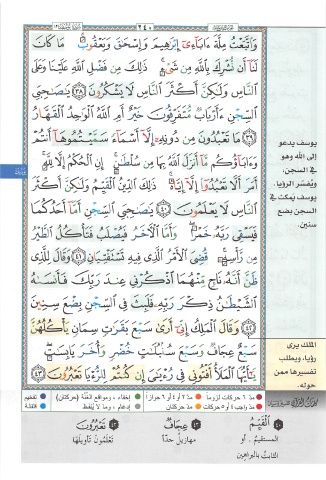 ٢٤٠
وَٱتَّبَعْتُ مِلَّةَ ءَابَآءِىٓ إِبْرَٰهِيمَ وَإِسْحَٰقَ وَيَعْقُوبَ ۚ مَا كَانَ
لَنَآ أَن نُّشْرِكَ بِٱللَّهِ مِن شَىْءٍ ۚ ذَٰلِكَ مِن فَضْلِ ٱللَّهِ عَلَيْنَا وَعَلَى
ٱلنَّاسِ وَلَٰكِنَّ أَكْثَرَ ٱلنَّاسِ لَا يَشْكُرُونَ ٣٨ يَٰصَىٰحِبَىِ
ٱلسِّجْنِ ءَأَرْبَابٌ مُّتَفَرِّقُونَ خَيْرٌ أَمِ ٱللَّهُ ٱلْوَٰحِدُ ٱلْقَهَّارُ
٣٩ مَا تَعْبُدُونَ مِن دُونِهِۦٓ إِلَّآ أَسْمَآءً سَمَّيْتُمُوهَآ أَنتُمْ
وَءَابَآؤُكُم مَّآ أَنزَلَ ٱللَّهُ بِهَا مِن سُلْطَٰنٍ ۚ إِنِ ٱلْحُكْمُ إِلَّا لِلَّهِ ۚ
أَمَرَ أَلَّا تَعْبُدُوٓا۟ إِلَّآ إِيَّاهُ ۚ ذَٰلِكَ ٱلدِّينُ ٱلْقَيِّمُ وَلَٰكِنَّ أَكْثَرَ
ٱلنَّاسِ لَا يَعْلَمُونَ ٤٠ يَٰصَىٰحِبَىِ ٱلسِّجْنِ أَمَّآ أَحَدُكُمَا
فَيَسْقِى رَبَّهُۥ خَمْرًا ۖ وَأَمَّا ٱلْءَاخَرُ فَيُصْلَبُ فَتَأْكُلُ ٱلطَّيْرُ
مِن رَّأْسِهِۦ ۚ قُضِىَ ٱلْأَمْرُ ٱلَّذِى فِيهِ تَسْتَفْتِيَانِ ٤١ وَقَالَ لِلَّذِى
ظَنَّ أَنَّهُۥ نَاجٍ مِّنْهُمَا ٱذْكُرْنِى عِندَ رَبِّكَ فَأَنسَىٰهُ
ٱلشَّيْطَٰنُ ذِكْرَ رَبِّهِۦ فَلَبِثَ فِى ٱلسِّجْنِ بِضْعَ سِنِينَ
٤٢ وَقَالَ ٱلْمَلِكُ إِنِّىٓ أَرَىٰ سَبْعَ بَقَرَٰتٍ سِمَانٍ يَأْكُلُهُنَّ
سَبْعٌ عِجَافٌ وَسَبْعَ سُنۢبُلَٰتٍ خُضْرٍ وَأُخَرَ يَابِسَٰتٍ ۖ
يَٰٓأَيُّهَا ٱلْمَلَأُ أَفْتُونِى فِى رُءْيَٰىَ إِن كُنتُمْ لِلرُّءْيَا تَعْبُرُونَ ٤٣
يوسف يدعو
إلى الله وهو
في السجن،
ويُفسّر الرؤيا.
يوسف يمكث في
السجن بضع
سنين.
الملك يرى
رؤيا، ويطلب
تفسيرها ممن
حوله.
مدّ ٦ حركات لزوماً
مدّ ٢ أو ٤ أو ٦ جوازاً
إخفاء، ومواقع الغُنَّة (حركتان)
تفخيم
مدّ واجب ٤ أو ٥ حركات
مدّ حركتان
إدغام، وما لا يُلفَظ
قلقلة
٤٠ ٱلْقَيِّمُ
المستقيم، أو
الثابت بالبراهين
٤٣ عِجَافٌ
مهازيل جدّاً
٤٣ تَعْبُرُونَ
تعلمون تأويلها